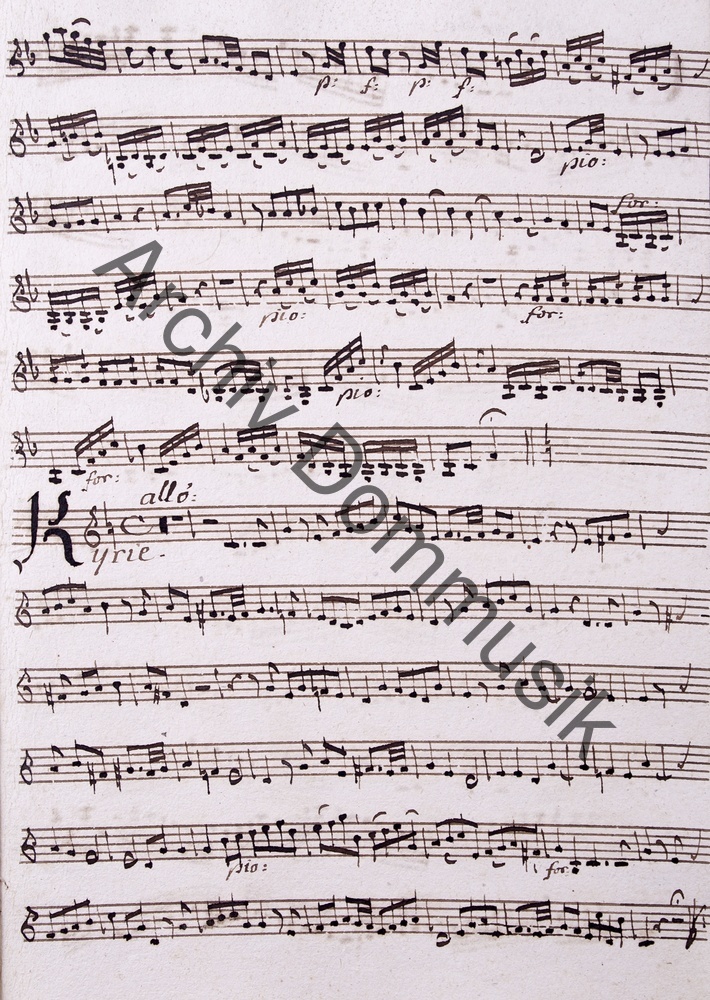 p: f: p: f:
pio:
for:
pio: for:
pio:
for:
allo:
Kyrie.
pio: for:
Archiv Dommusik